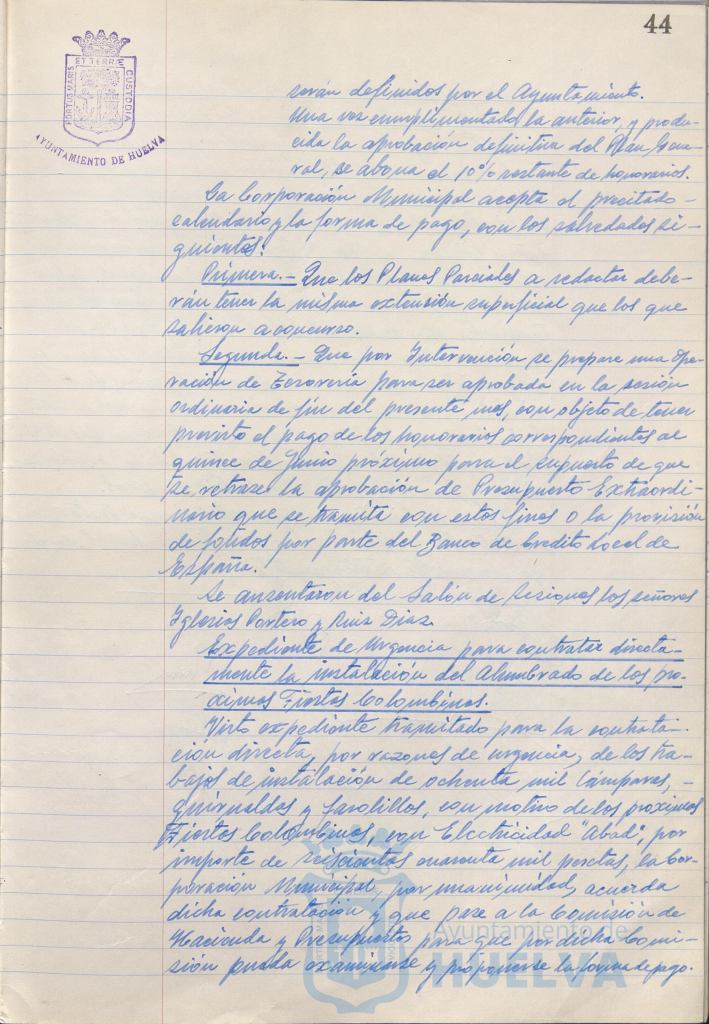 44
PORTUS MARIS ET TERRÆ CUSTODIA
AYUNTAMIENTO DE HUELVA
serán definidos por el Ayuntamiento.
Una vez cumplimentado la anterior, y produ-
cida la aprobación definitiva del Plan Gene-
ral, se abona el 10% restante de honorarios.
La Corporación Municipal acepta el precitado
calendario y la forma de pago, con los salvedades si-
guientes:
Primera.- Que los Planes Parciales a redactar debe-
rán tener la misma extensión superficial que los que
salieron a concurso.
Segunda.- Que por Intervención se prepare una Ope-
ración de Tesorería para ser aprobada en la sesión
ordinaria de fin del presente mes, con objeto de tener
previsto el pago de los honorarios correspondientes al
quince de Junio próximo para el supuesto de que
se retrase la aprobación de Presupuesto Extraordi-
nario que se tramita con estos fines o la provisión
de fondos por parte del Banco de Crédito Local de
España.
Se ausentaron del Salón de Sesiones los señores
Iglesias Portero y Ruiz Diaz.
Expediente de Urgencia para contratar directa-
mente la instalación del Alumbrado de los pró-
ximas Fiestas Colombinas.
Visto expediente tramitado para la contrata-
ción directa, por razones de urgencia, de los tra-
bajos de instalación de ochenta mil lámparas,
guirnaldas y farolillos, con motivo de los próximas
Fiestas Colombinas, con Electricidad "Abad", por
importe de seiscientas cuarenta mil pesetas, la Cor-
poración Municipal, por unanimidad, acuerda
dicha contratación y que pase a la Comisión de
Hacienda y Presupuestos para que por dicha Comi-
sión pueda examinarse y proponerse la forma de pago.
Ayuntamiento de
HUELVA